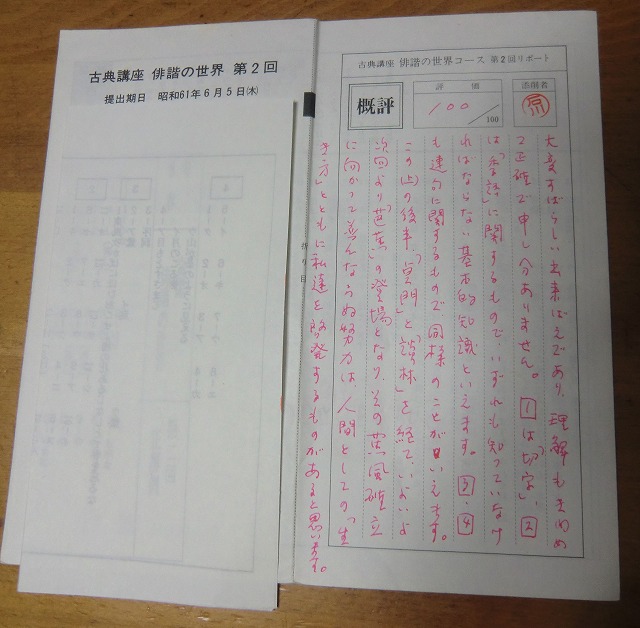 古典講座 俳諧の世界 第2回
提出期日 昭和61年6月5日(木)
古典講座 俳諧の世界コース 第2回リポート
概評
評価
100
/100
添削者
大変すばらしい出来ばえであり、理解もきわめ
て正確で申し分ありません。1は「切字」、2
は「季語」に関するもので、いずれも知っていなけ
ればならない基本的知識といえます。3・4
も連句に関するもので同様のことがいえます。
この(上)の後半「貞門」と「談林」を経て、いよいよ
次回より「芭蕉」の登場となり、その蕉風確立
に向かって並々ならぬ努力は、人間としての「生
き方」とともに私達を啓発するものがあると思います。
折り目